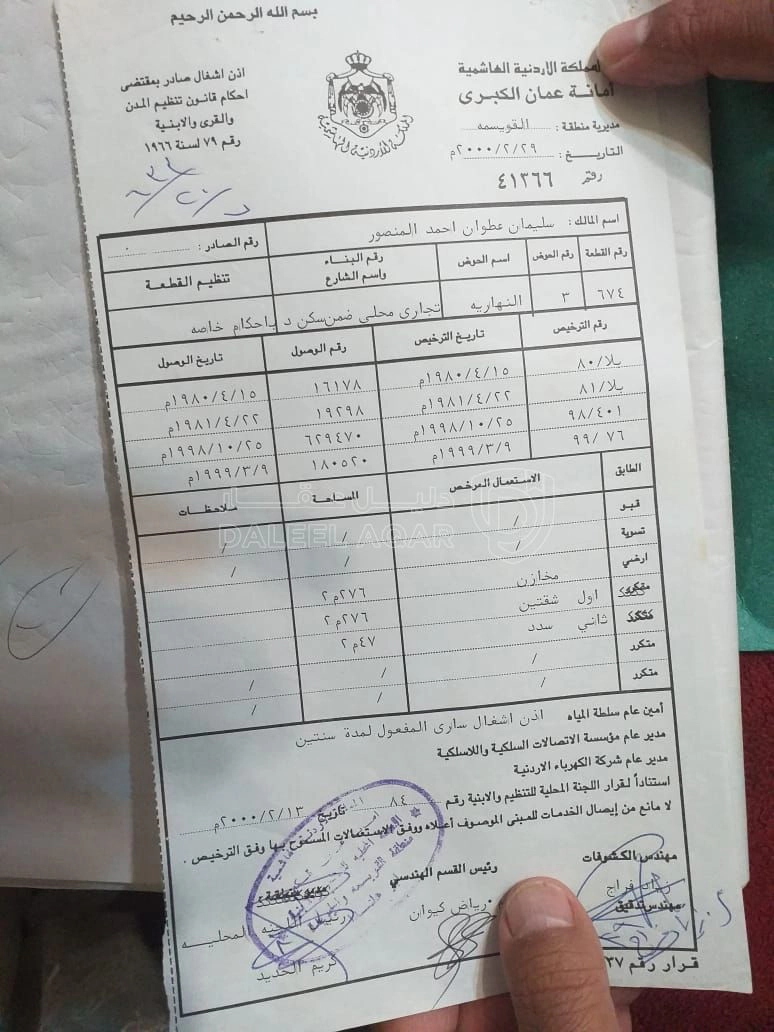 بسم الله الرحمن الرحيم
المملكة الاردنية الهاشمية
أمانة عمان الكبرى
مديرية منطقة : القويسمه
التاريخ : ٢٠٠٠/٢/٢٩م
رقم ٤١٣٦٦
المملكة الأردنية الهاشمية
اذن اشغال صادر بمقتضى
احكام قانون تنظيم المدن
والقرى والابنية
رقم ٧٩ لسنة ١٩٦٦
اسم المالك : سليمان عطوان احمد المنصور
رقم الصادر :
رقم القطعة رقم الحوض اسم الحوض رقم البناء واسم الشارع تنظيم القطعة
٦٧٤ ٣ النهاريه تجاري محلي ضمن سكن د باحكام خاصه
رقم الترخيص تاريخ الترخيص رقم الوصول تاريخ الوصول
بلا/٨٠ ١٩٨٠/٤/١٥م ١٦١٧٨ ١٩٨٠/٤/١٥م
بلا/٨١ ١٩٨١/٤/٢٢م ١٩٢٩٨ ١٩٨١/٤/٢٢م
٩٨/٤٠١ ١٩٩٨/١٠/٢٥م ٦٢٩٤٧٠ ١٩٩٨/١٠/٢٥م
٩٩/٧٦ ١٩٩٩/٣/٩م ١٨٠٥٢٠ ١٩٩٩/٣/٩م
الطابق الاستعمال المرخص المساحة ملاحظات
دليل عقار
DALEEL AQAR
قبو / / /
تسوية / / /
ارضي مخازن ٢٧٦م٢
متكرر اول شقتين ٢٧٦م٢
متكرر ثاني سدد ٤٧م٢
متكرر / / /
متكرر / / /
أمين عام سلطة المياه اذن اشغال ساري المفعول لمدة سنتين
مدير عام مؤسسة الاتصالات السلكية واللاسلكية
مدير عام شركة الكهرباء الاردنية
استناداً لقرار اللجنة المحلية للتنظيم والابنية رقم ٨٤ تاريخ ٢٠٠٠/٢/١٣م
لا مانع من إيصال الخدمات للمبنى الموصوف أعلاه ووفق الاستعمالات المسموح بها وفق الترخيص .
مهندس الكشوفات
رئيس القسم الهندسي
فراج
مهندس تدقيق
رياض كيوان
رئيس اللجنه المحليه
كريم الحديد
قرار رقم ٣٧